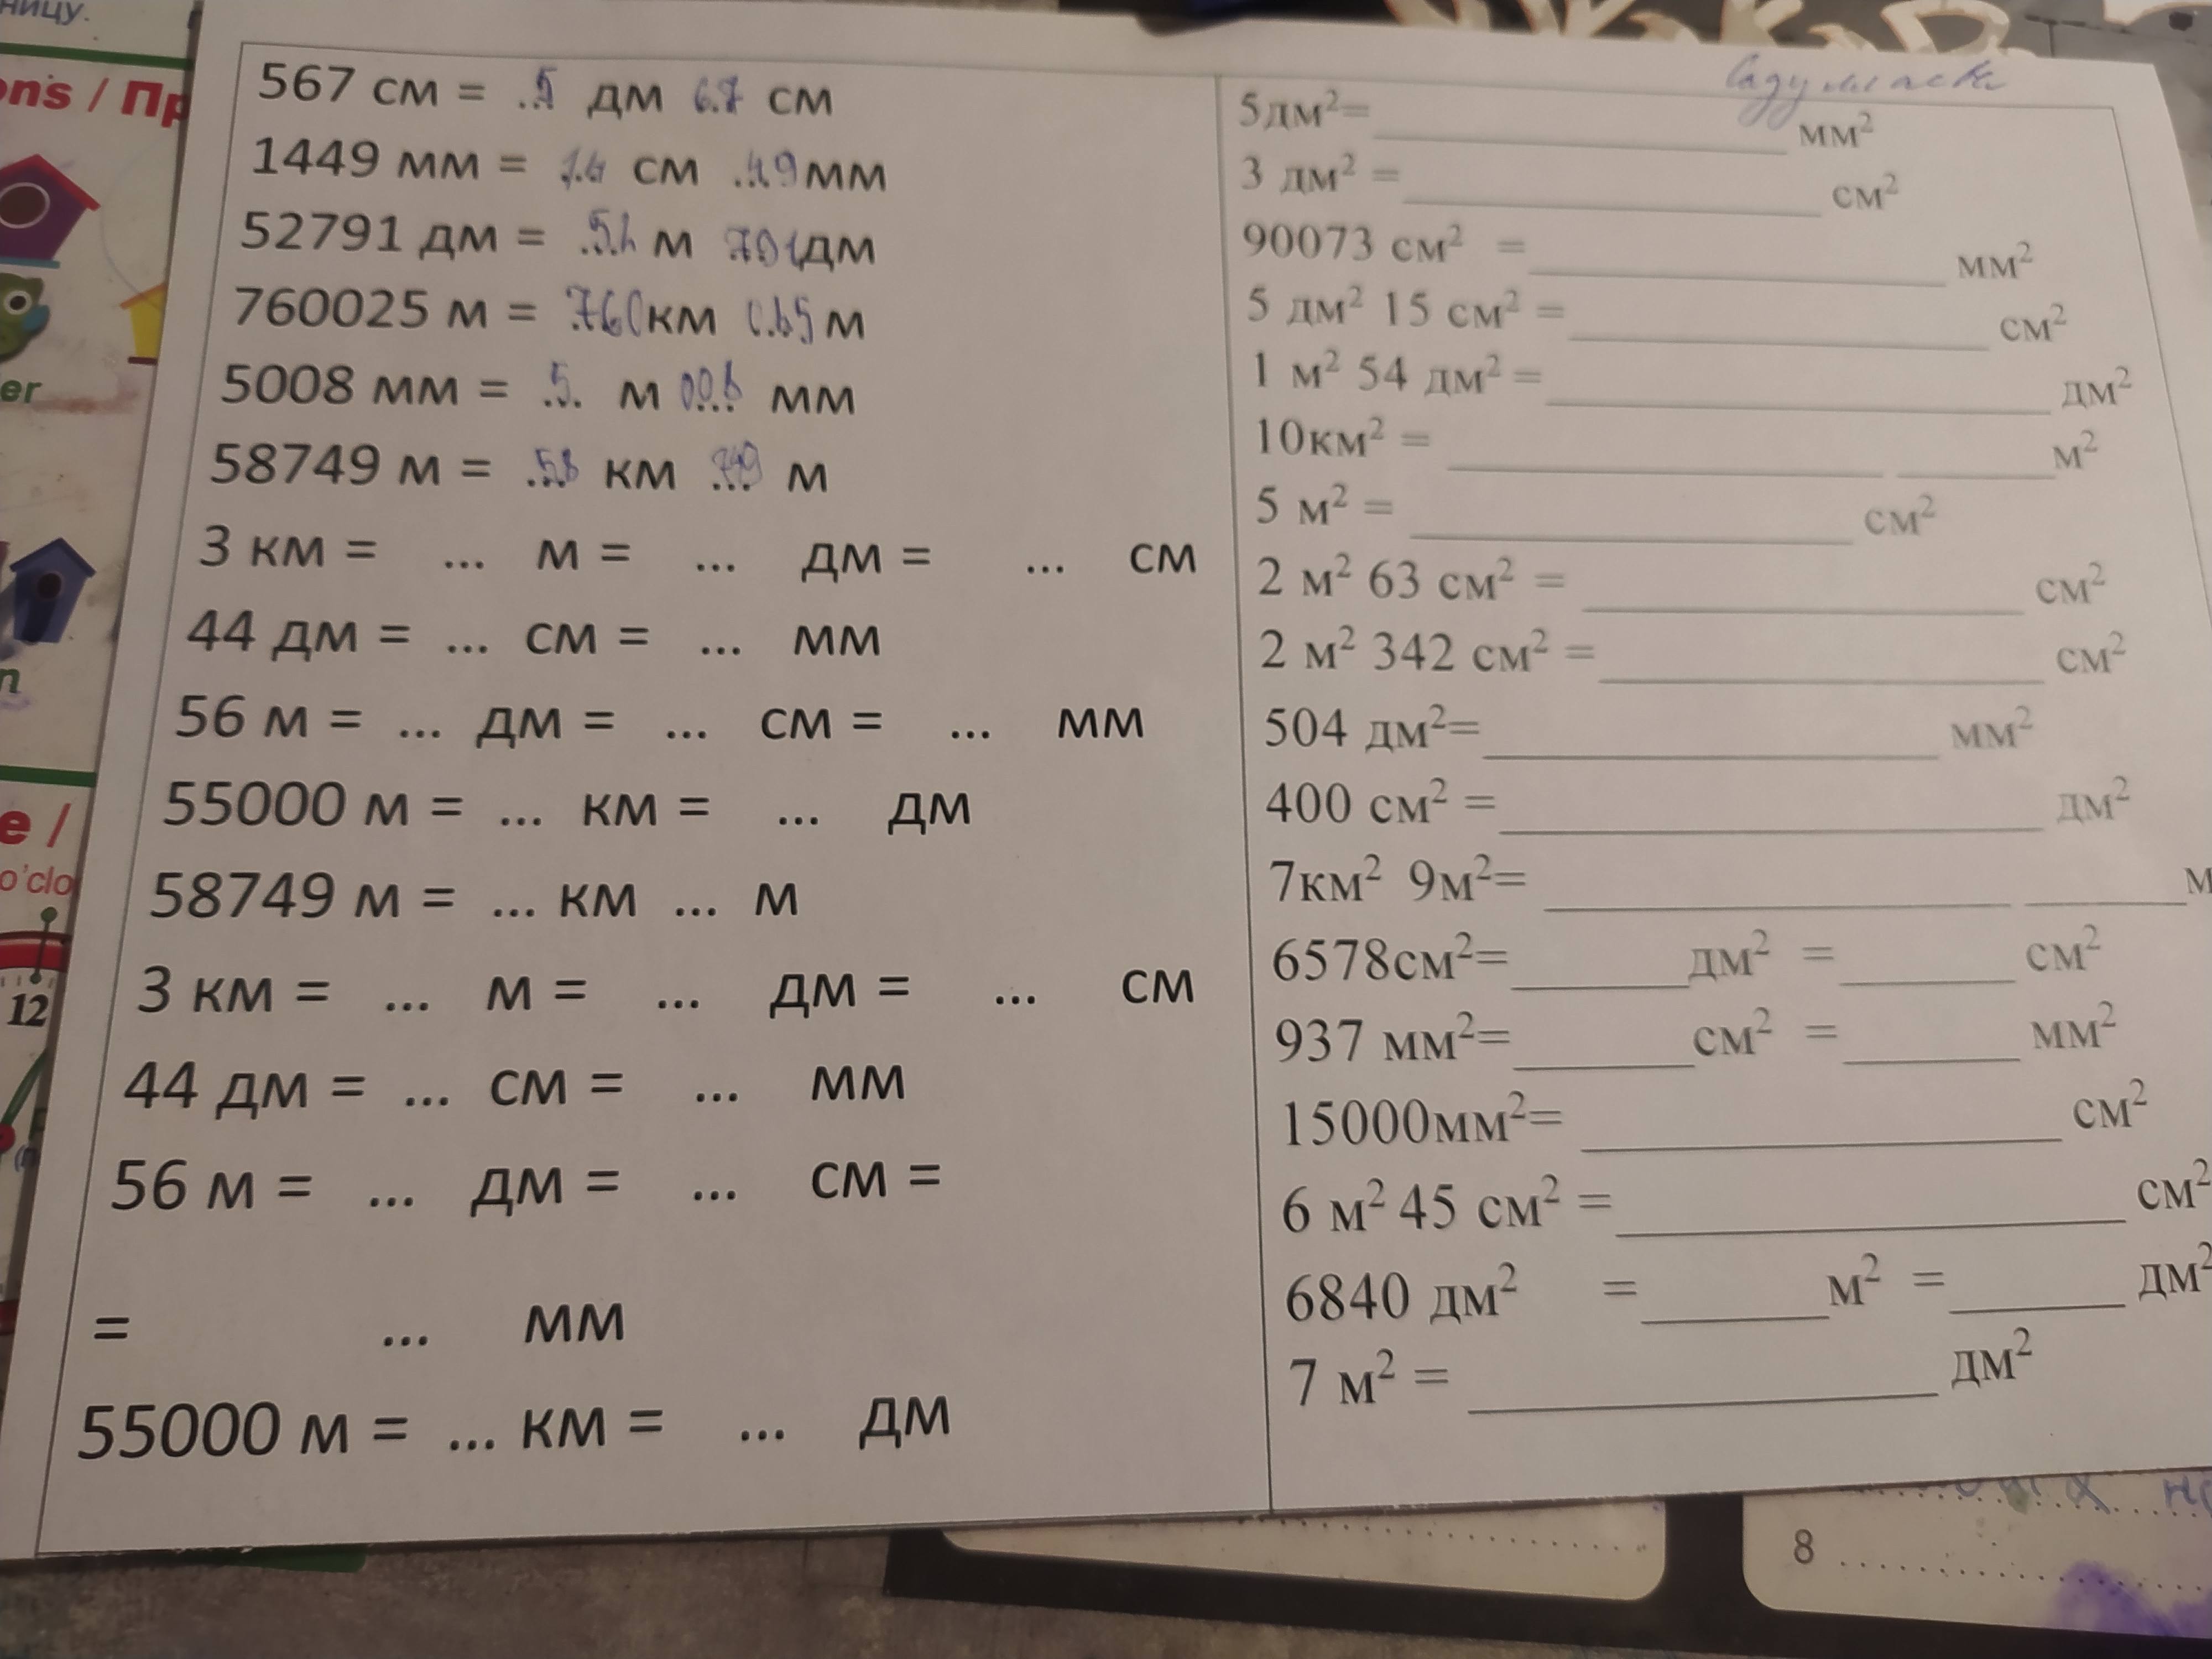 ницу.
ons / Пр
er
n
e /
o'clo
12
567 см = ..5 дм 6.7 см
1449 мм = 14 см ..49 мм
52791 дм = .52. м 791 дм
760025 м = .760 км 0.25 м
5008 мм = .5. м 008 мм
58749 м = .58 км 749 м
3 км = ... м = ... дм = ... см
44 дм = ... см = ... мм
56 м = ... дм = ... см = ... мм
55000 м = ... км = ... дм
58749 м = ... км ... м
3 км = ... м = ... дм = ... см
44 дм = ... см = ... мм
56 м = ... дм = ... см =
= ... мм
55000 м = ... км = ... дм
5дм²= ____________ мм²
3 дм² = ____________ см²
90073 см² = ____________ мм²
5 дм² 15 см² = ____________ см²
1 м² 54 дм² = ____________ дм²
10км² = ____________ _____ м²
5 м² = ____________ см²
2 м² 63 см² = ____________ см²
2 м² 342 см² = ____________ см²
504 дм²= ____________ мм²
400 см² = ____________ дм²
7км² 9м²= ____________ _____ м
6578см²= _____ дм² = _____ см²
937 мм²= _____ см² = _____ мм²
15000мм²= ____________ см²
6 м² 45 см² = ____________ см²
6840 дм² = _____ м² = _____ дм²
7 м² = ____________ дм²
8